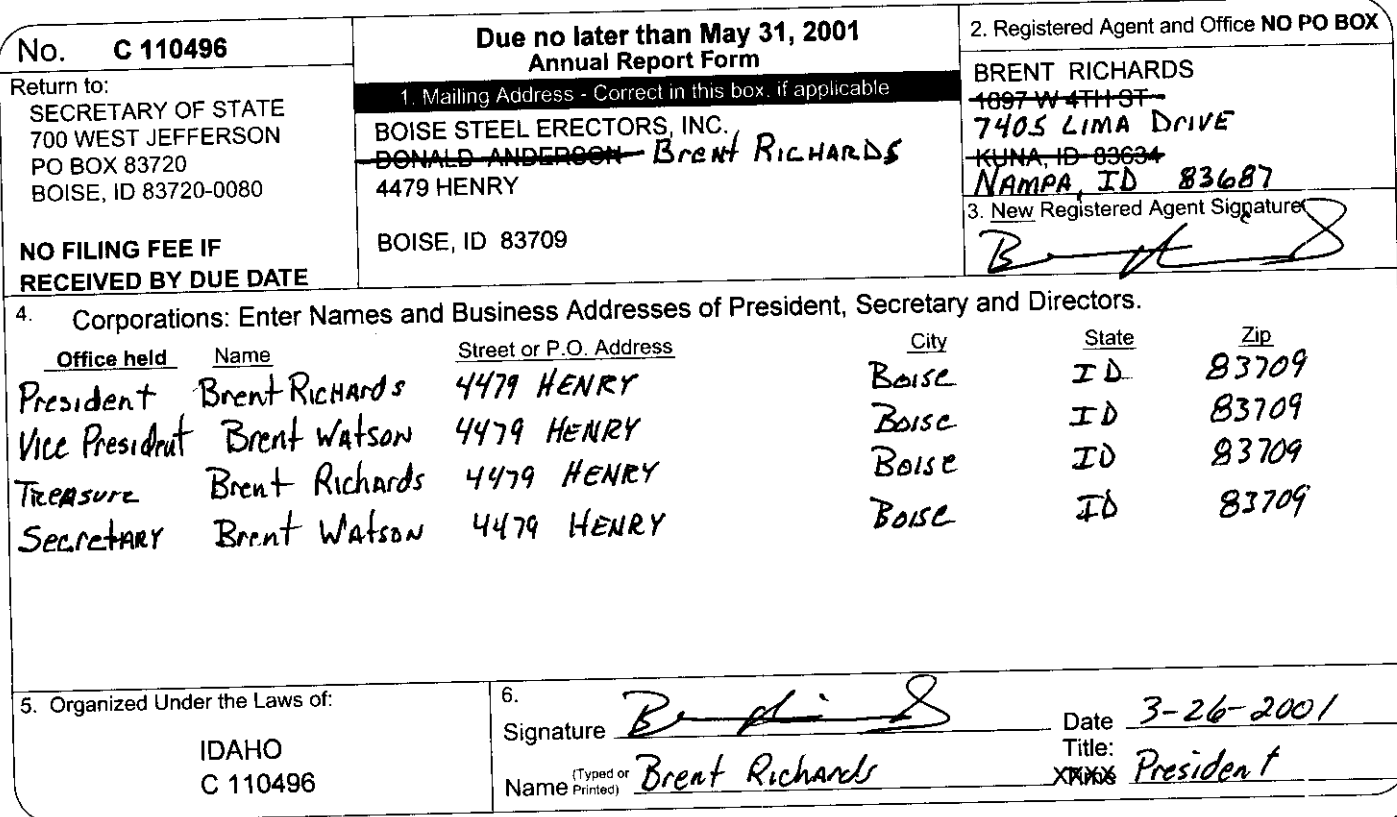 No. C 110496
Return to:
SECRETARY OF STATE
700 WEST JEFFERSON
PO BOX 83720
BOISE, ID 83720-0080
NO FILING FEE IF
RECEIVED BY DUE DATE
Due no later than May 31, 2001
Annual Report Form
1. Mailing Address - Correct in this box, if applicable
BOISE STEEL ERECTORS, INC.
DONALD ANDERSON Brent RICHARDS
4479 HENRY
BOISE, ID 83709
2. Registered Agent and Office NO PO BOX
BRENT RICHARDS
1897 W 4TH ST
7405 LIMA DRIVE
KUNA, ID 83634
NAMPA, ID 83687
3. New Registered Agent Signature
4. Corporations: Enter Names and Business Addresses of President, Secretary and Directors.
Office held Name Street or P.O. Address City State Zip
President Brent Richards 4479 HENRY Boise ID 83709
Vice President Brent Watson 4479 HENRY Boise ID 83709
Treasure Brent Richards 4479 HENRY Boise ID 83709
Secretary Brent Watson 4479 HENRY Boise ID 83709
5. Organized Under the Laws of:
IDAHO
C 110496
6.
Signature Date 3-26-2001
Name (Typed or Printed) Brent Richards Title: President